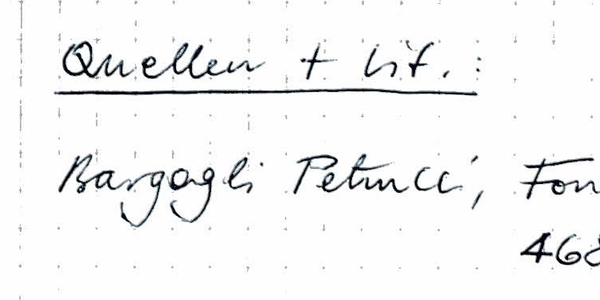 Quellen + Lit. :
Bargagli Petrucci, Fon
468